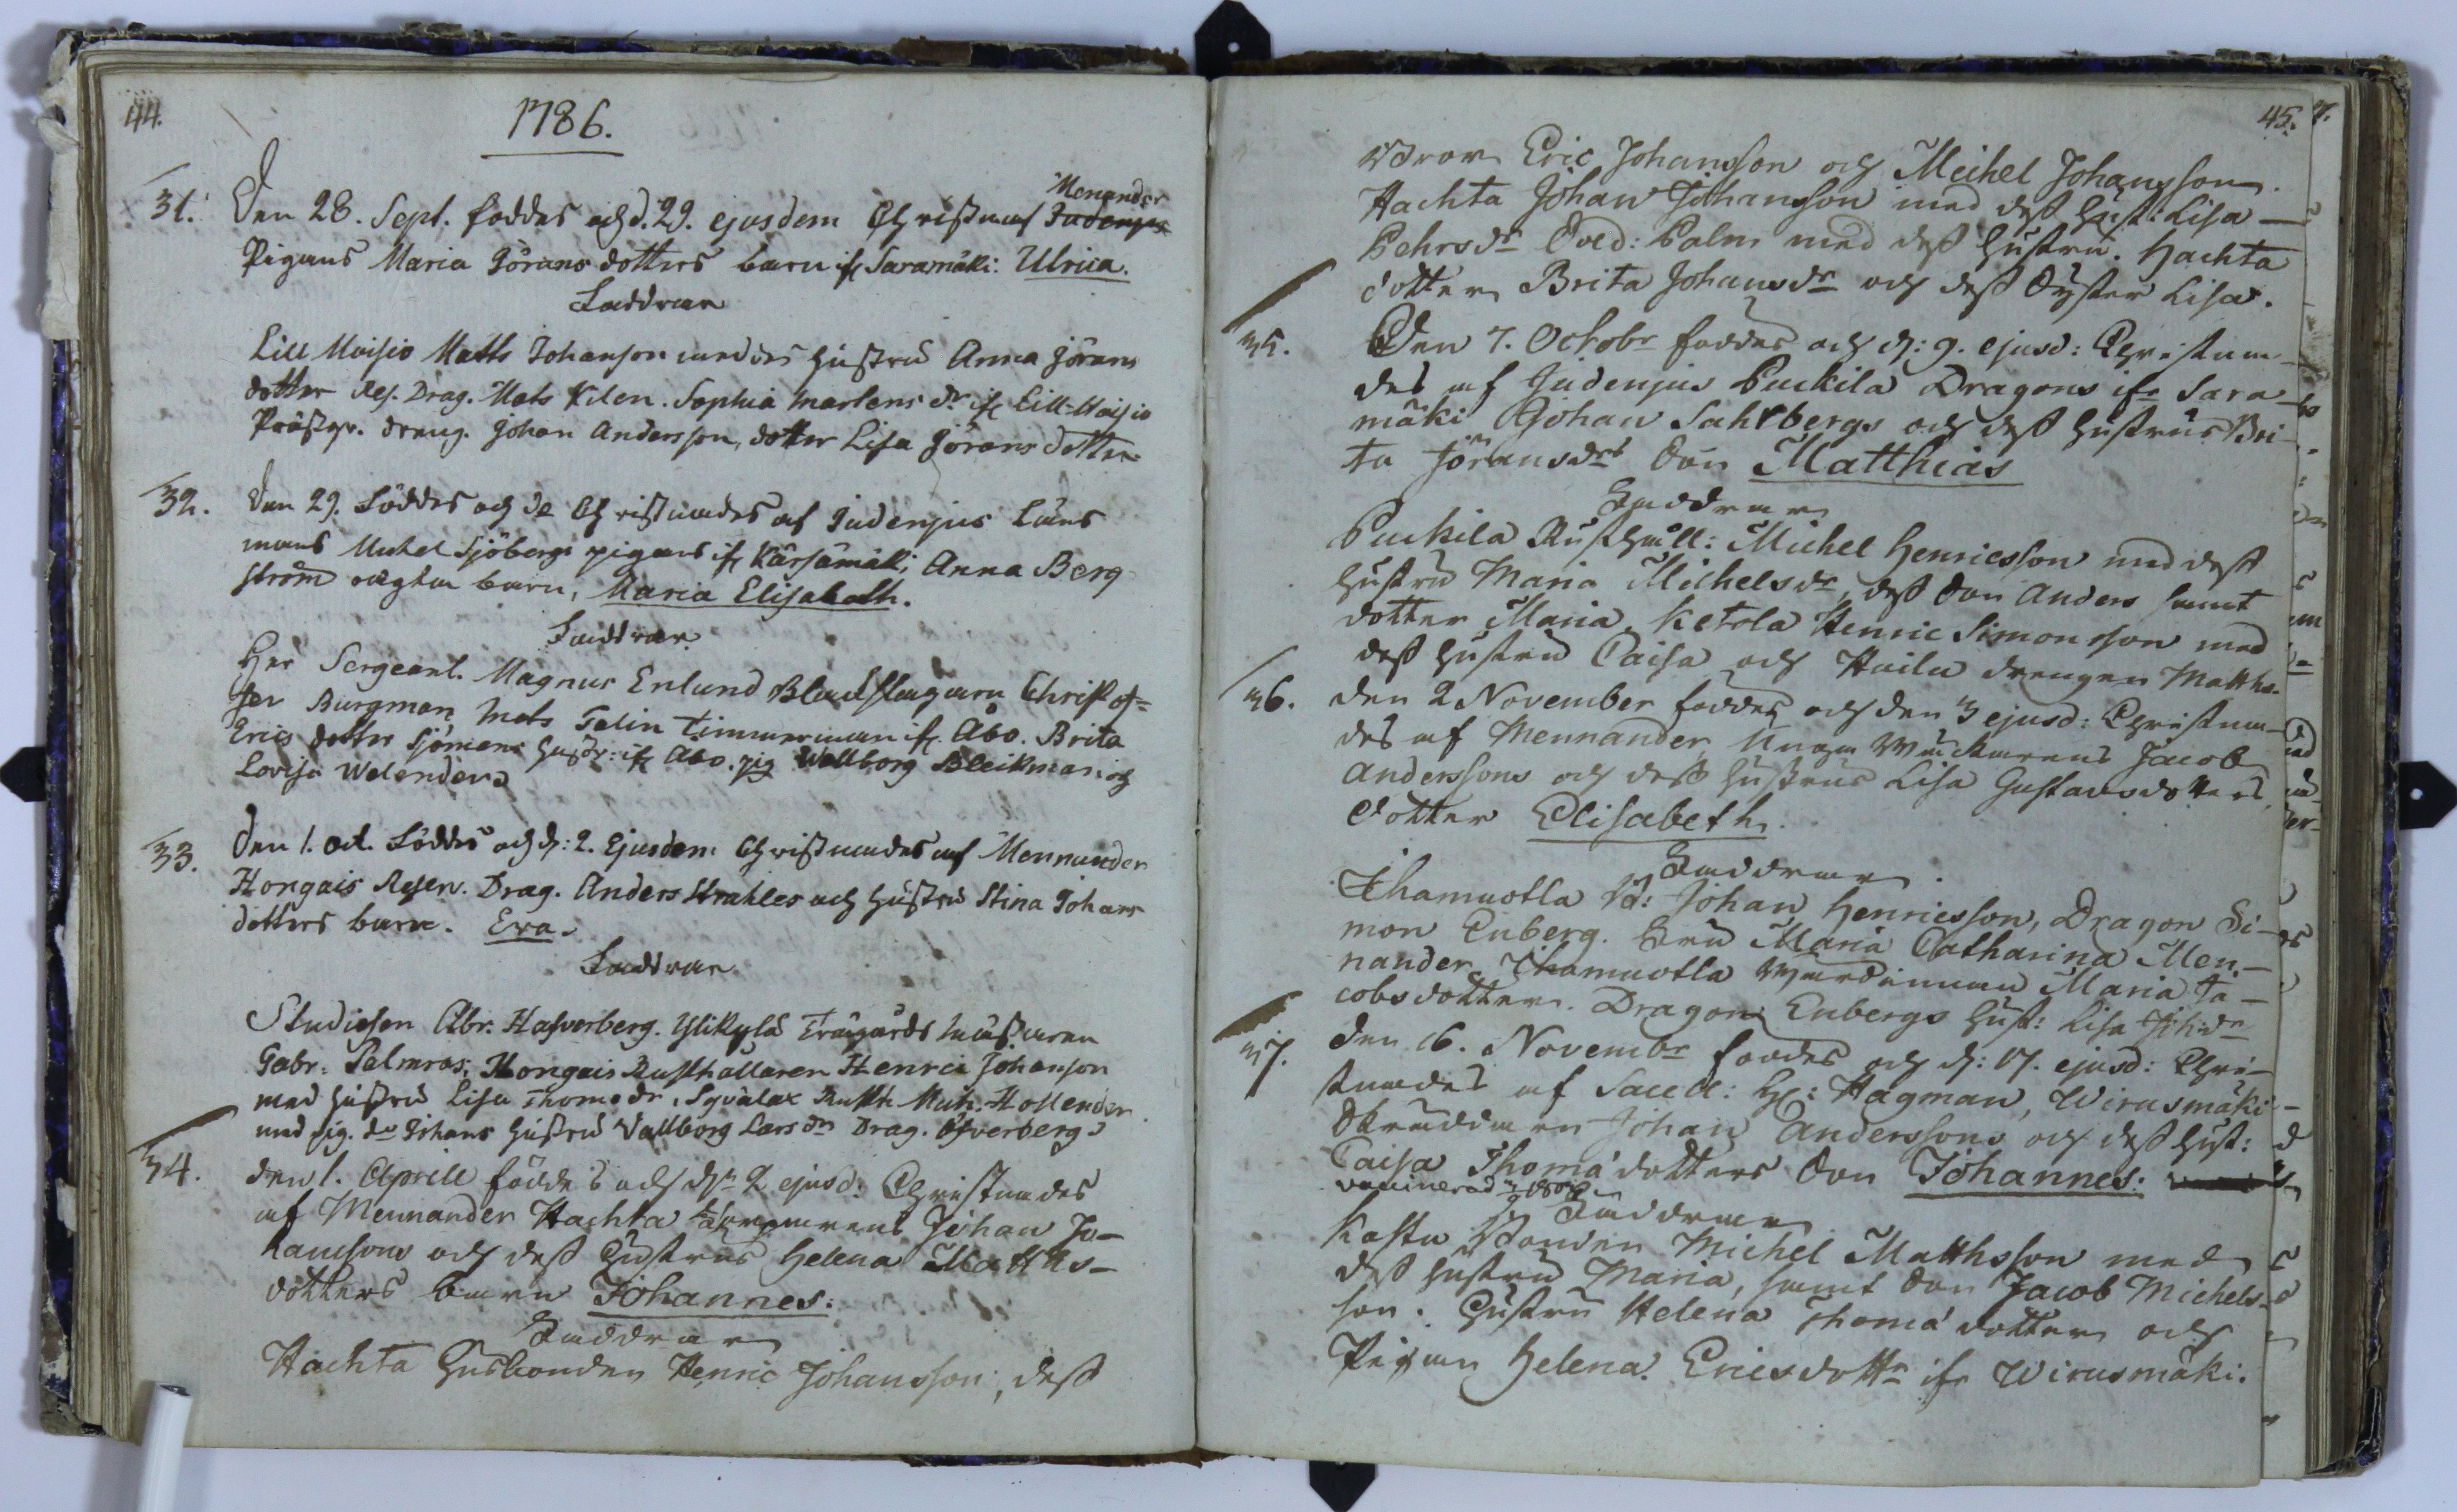 44.
1786.
Menander
31. Den 28. Sept. föddes och d. 29. ejusdem Christnas af Judenjus
Pigans Maria Görans dotters barn ifr Saramäki: Ulrica.
Faddrar
Lill Moisio Matts Johanson med des hustru Anna Jörans
dotter Res. Drag. Mats Kilen. Sophia Martens dr ifr Lill-Moisio
Prästgr. dreng. Johan Andersson, dotter Lisa Jörans dotter
32. Den 29. Föddes och do Christnades af Judenjus Läns
mans Michel Sjöbergs pigans ifr Kärsämäki Anna Berg
ström oägta barn, Maria Elisabeth.
Faddrar
Her Sergeant. Magnus Enlund Bleckslagarn Christof=
fer Burgman, Mats Felin Timmerman ifr. Åbo. Brita
Erics dotter Sjömans hustr: ifr Åbo. pig Wallborg Bleikman och
Lovisa Welenders
33. Den 1. Oct. Föddes och d: 2. Ejusdem Christnades af Mennander
Hongais Reserv. Drag. Anders Strahles och hustru Stina Johans
dotters barn. Eva.
Faddrar
Studiosen Abr. Hasverberg. Ylikylä Trägårds Mästaren
Gabr: Palmros; Hongais Rusthållaren Henric Johanson
med hustru Lisa Thomæ dr, Syvälax Rusth. Mich. Hollender
med pig. do Johans hustru Vallborg Lars dr Drag. Öfverbergs
34. den 1. Aprill föddes och dn 2 ejusd: Christnades
af Mennander Hachta Johan Jo-
hansons och dess Hustrus Helena Matths-
dotters barn Johannes:
Faddrar
Hachta Husbonden Henric Johansson, dess
45.
Eric Johansson och Michel Johansson.
Hachta Johan Johansson med dess Hust: Lisa
Pehrsdr Sold: Palm med dess Hustru. Hachta
dotter Brita Johansdr och dess Syster Lisa.
35. Den 7. Octobr föddes och d: 9. ejusd: Christna-
des af Judenjus Puckila Dragons ifr Sara-
mäki Johan Sahlbergs och dess Hustrus Bri-
ta Jöransdrs Son Matthias
Faddrar
Puckila Rusthåll: Michel Henricsson med dess
Hustru Maria Michelsdr, dess Son Anders samt
dotter Maria. Ketola Henric Simonsson med
dess Hustru Caisa och Huila drengen Matths.
36. den 2 November föddes och den 3 ejusd: Christna-
des af Mennander Jacob
Anderssons och dess Hustrus Lisa Gustavsdotters
dotter Elisabeth.
Faddrar
Thamuotla B: Johan Henricsson, Dragon Si-
mon Enberg. Fru Maria Catharina Men-
nander, Thamuotla Wärdinnan Maria Ja-
cobsdotter. Dragon Enbergs Hust: Lisa Joh:dr
37. den 16. Novembr föddes och d: 17. ejusd: Chri-
stnades af Sacell: H: Hagman, Wirusmäki
Skräddaren Johan Anderssons och dess Hust:
Caisa Thomä dotters Son Johannes.
vaccinerad
Faddrar
Kastu Bonden Michel Matthsson med
dess Hustru Maria, samt Son Jacob Michels-
son. Hustru Helena Thomä dotter och
Pigan Helena Ericsdottr ifr Wirusmäki.